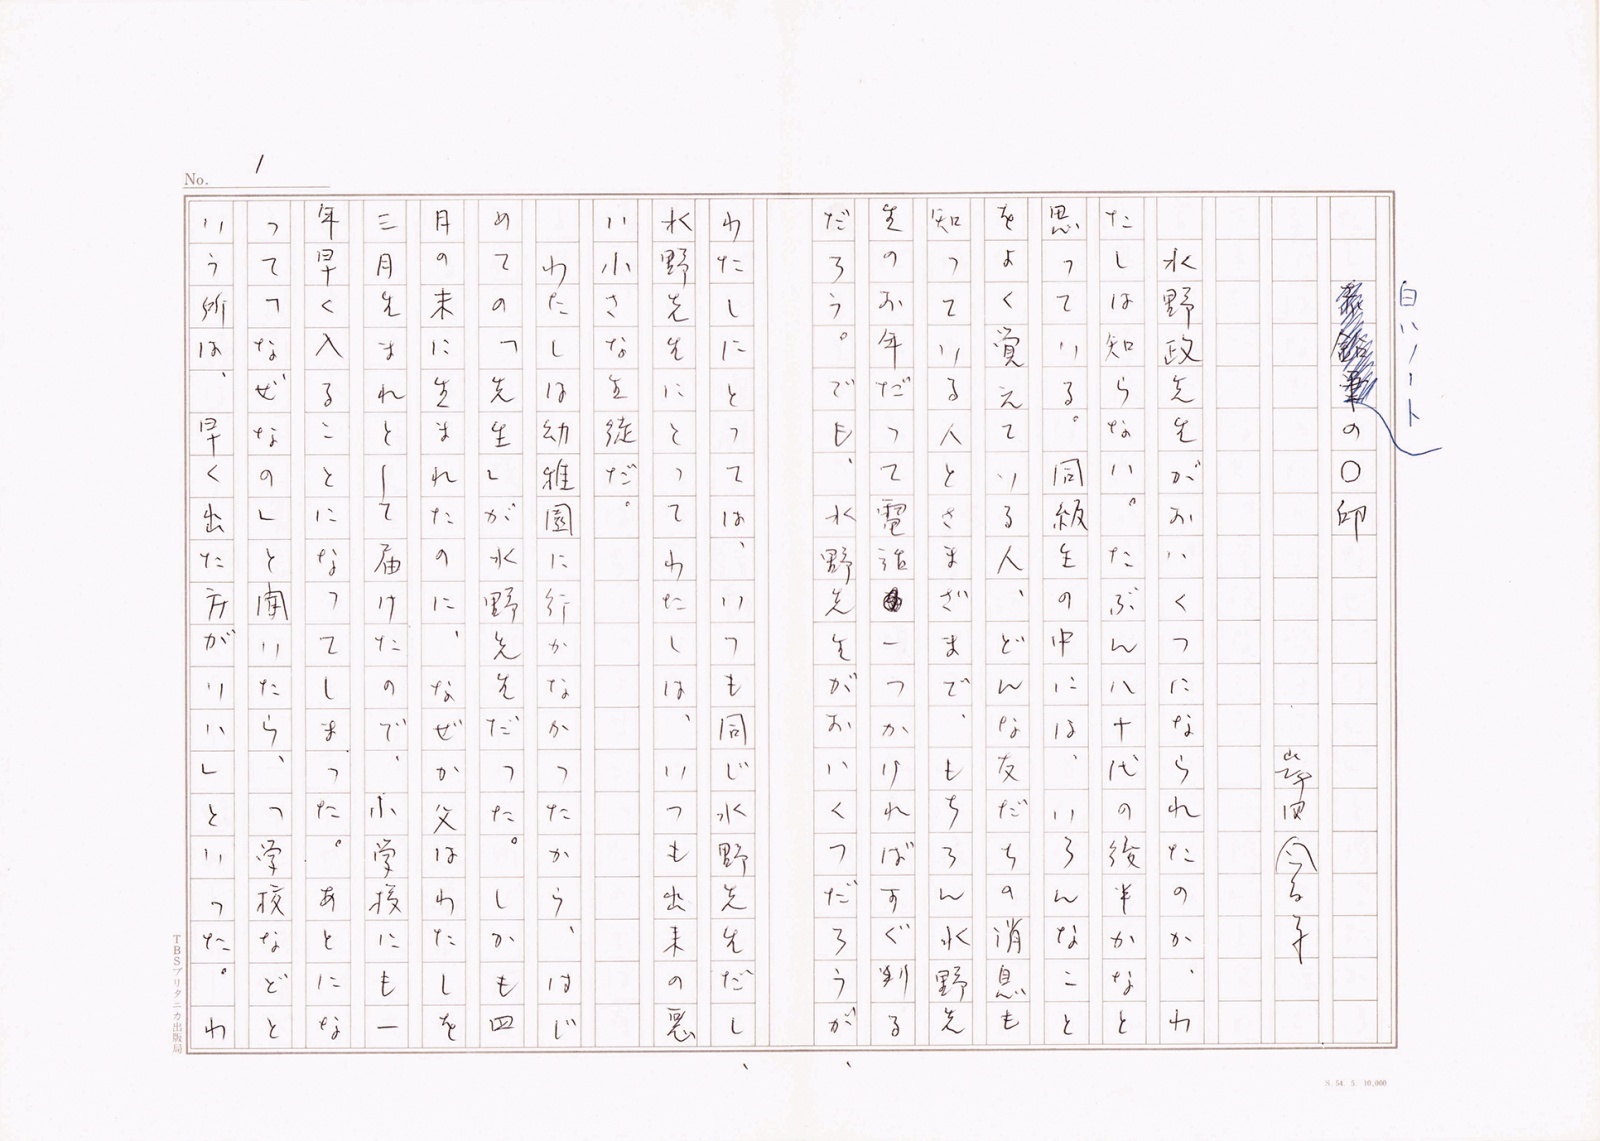 No. 1
白いノート
の〇印
岸田今日子
水野政先生がおいくつになられたのか、わ
たしは知らない。たぶん八十代の後半かなと
思っている。同級生の中には、いろんなこと
をよく覚えている人、どんな友だちの消息も
知っている人とさまざまで、もちろん水野先
生のお年だって電話一つかければすぐ判る
だろう。でも、水野先生がおいくつだろうが
わたしにとっては、いつも同じ水野先生だし
水野先生にとってわたしは、いつも出来の悪
い小さな生徒だ。
わたしは幼稚園に行かなかったから、はじ
めての「先生」が水野先生だった。しかも四
月の末に生まれたのに、なぜか父はわたしを
三月生まれとして届けたので、小学校にも一
年早く入ることになってしまった。あとにな
って「なぜなの」と聞いたら、「学校などと
いう所は、早く出た方がいい」といった。わ
TBSブリタニカ出版局
S. 54. 5. 10,000